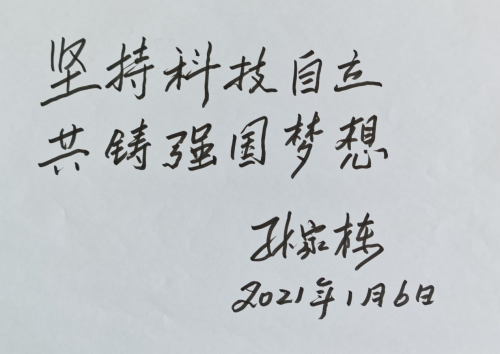 坚持科技自立
共铸强国梦想
孙家栋
2021年1月6日